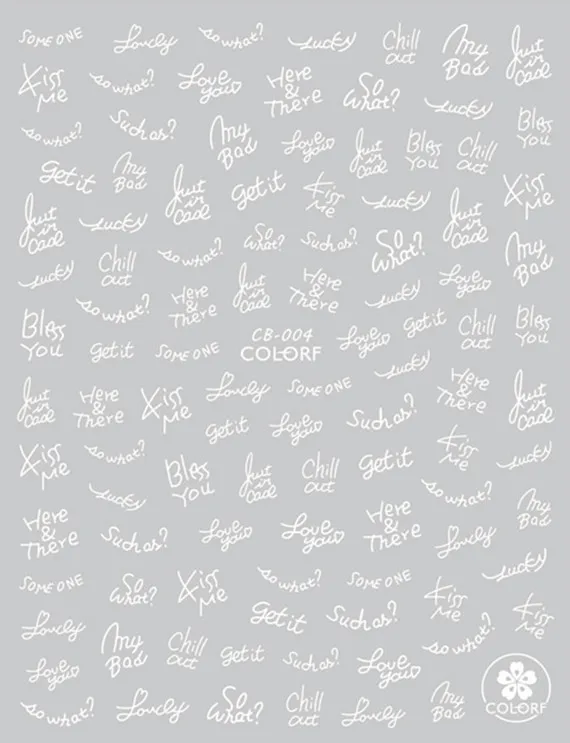 SOMEONE
Lovely
so what?
Lucky
Chill
out
My
Bad
Just
in
Case
Kiss
Me
so what?
Love
you
Here
&
There
So
What?
Lucky
Bless
You
so what?
Such as?
My
Bad
Love
you
Just
in
Case
Bless
You
Chill
out
Get it
My
Bad
Just
in
Case
Get it
Kiss
Me
Lucky
Kiss
Me
Just
in
Case
Lucky
So
What?
Such as?
So
What?
Just
in
Case
My
Bad
Lucky
Chill
out
so what?
Just
in
Case
Here
&
There
Lucky
Love
you
so what?
Here
&
There
Bless
You
Get it
SOMEONE
CB-004
COLORF
Love
you
Get it
Chill
out
Bless
You
Lucky
Just
in
Case
Here
&
There
Kiss
Me
Lovely
SOMEONE
Here
&
There
Just
in
Case
Get it
Love
you
Such as?
Kiss
Me
so what?
Bless
You
Just
in
Case
Chill
out
Get it
Kiss
Me
Lucky
Lucky
so what?
My
Bad
Here
&
There
Such as?
Love
you
Love
you
Here
&
There
Lovely
Lucky
SOMEONE
So
What?
Kiss
Me
so what?
SOMEONE
Kiss
Me
Kiss
Me
Get it
Such as?
Lovely
My
Bad
Chill
out
Get it
Such as?
so what?
Love
you
Love
you
COLORF
so what?
Lovely
So
What?
Chill
out
Lovely
My
Bad